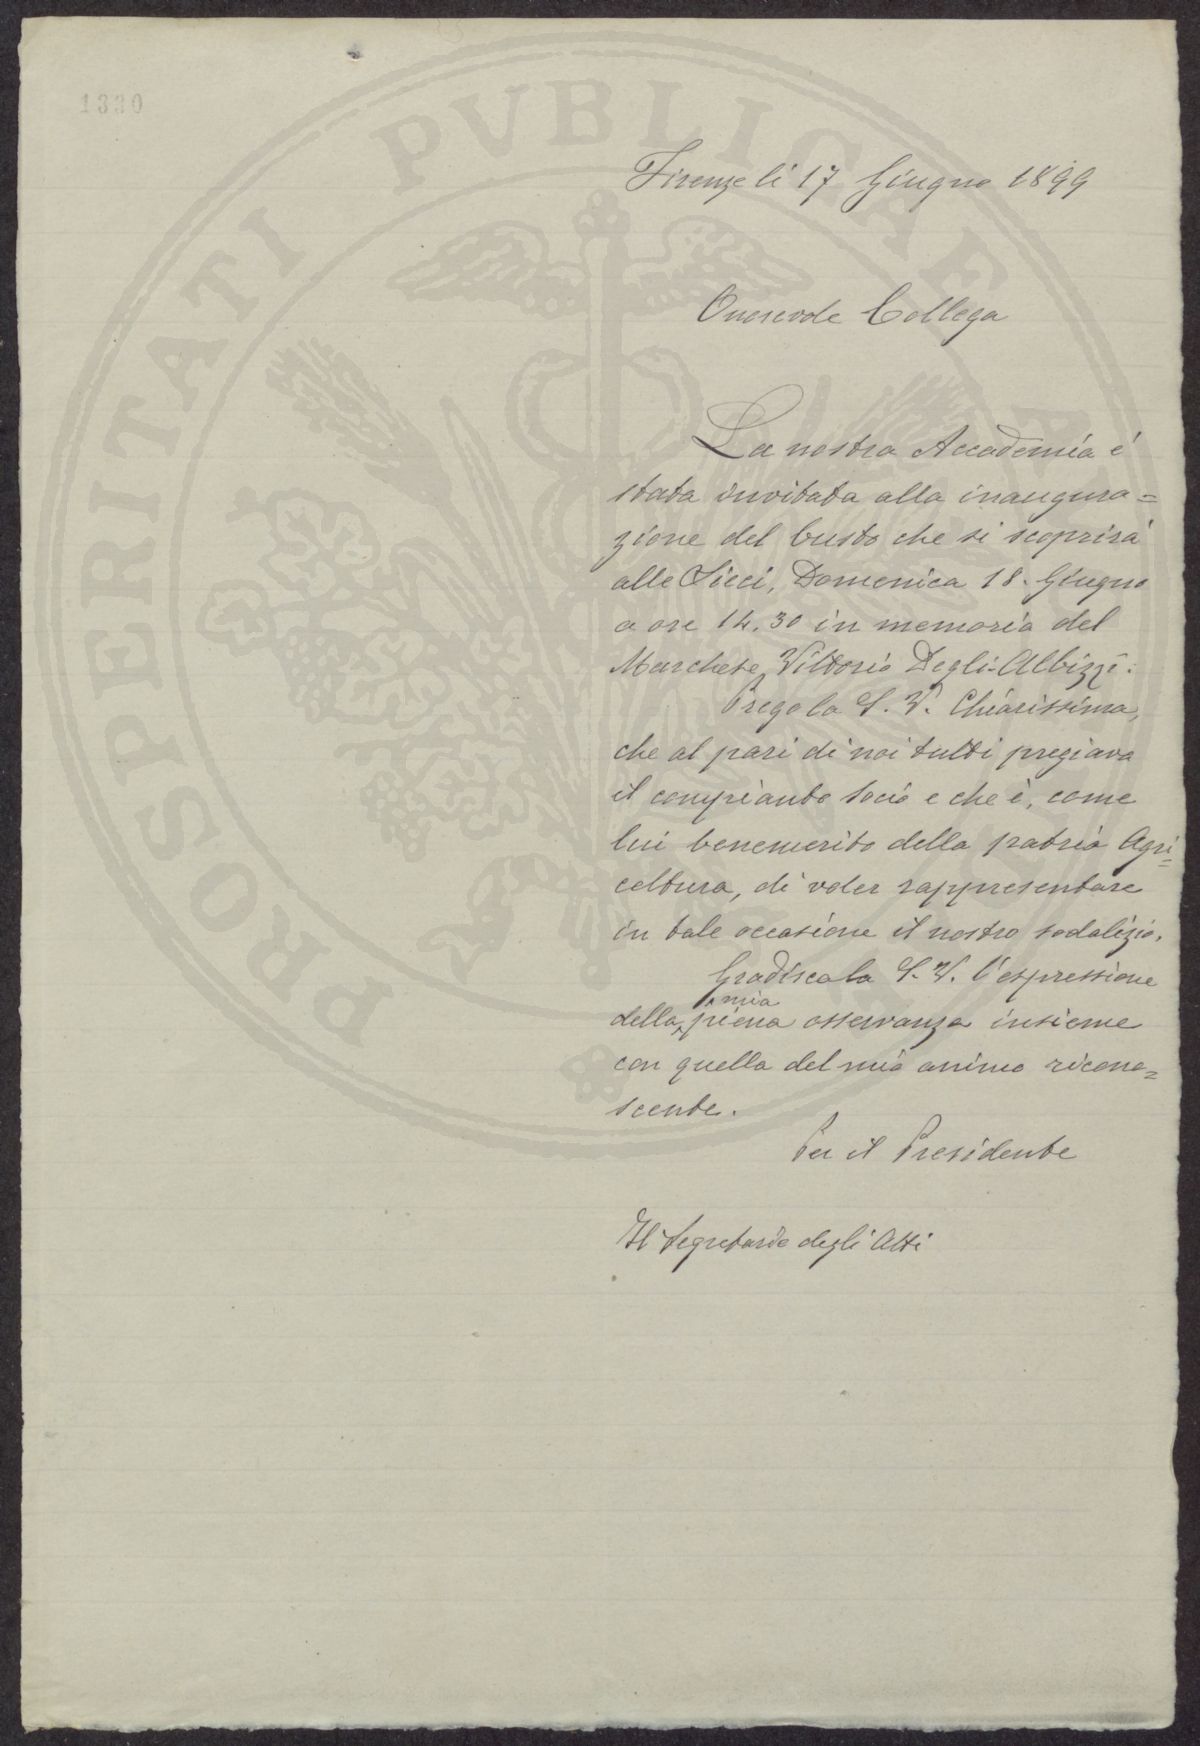 1330
PROSPERITATI PVBLICAE
Firenze li 17 Giugno 1899
Onorevole Collega
La nostra Accademia è
stata invitata alla inaugura=
zione del busto che si scoprirà
alle Sieci, Domenica 18. Giugno
a ore 14.30 in memoria del
Marchese Vittorio Degli-Albizzi.
Prego la S. V. Chiarissima,
che al pari di noi tutti pregiava
il compianto socio e che è, come
lui benemerito della patria Agri=
coltura, di voler rappresentare
in tale occasione il nostro sodalizio.
Gradisca la S. V. l'espressione
mia
della piena osservanza insieme
con quella del mio animo ricono=
scente.
Per il Presidente
Il Segretario degli Atti